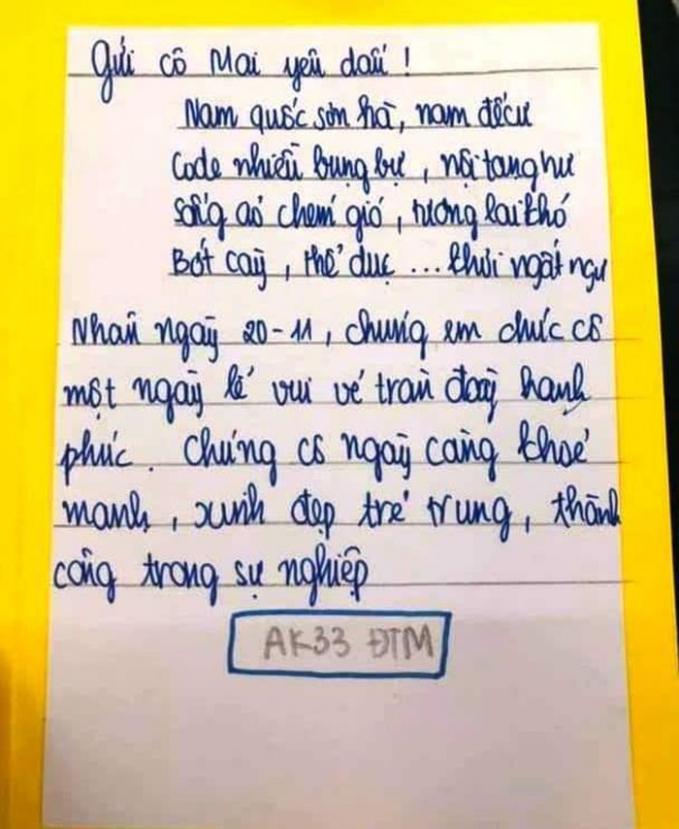 Gửi cô Mai yêu dấu !
Nam quốc sơn hà, nam đế cư
Code nhiều bụng bự, nội tạng hư
Sống ảo chém gió, tương lai khó
Bớt cay, thể dục ... khỏi ngất ngư
Nhân ngày 20-11, chúng em chúc cô
một ngày lễ vui vẻ tràn đầy hạnh
phúc. Chúng cô ngày càng khoẻ
mạnh, xinh đẹp trẻ trung, thành
công trong sự nghiệp
AK33 ĐTM